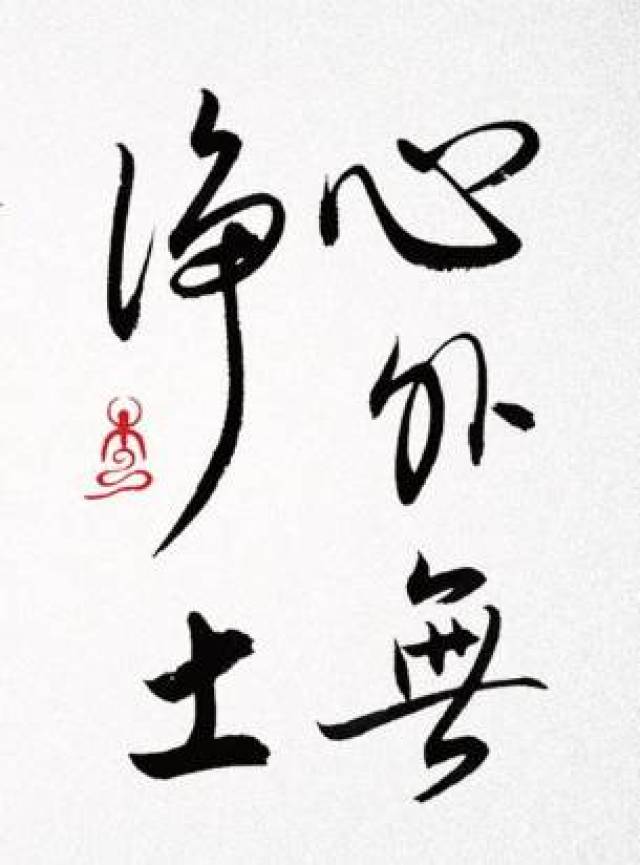 心外無
净土